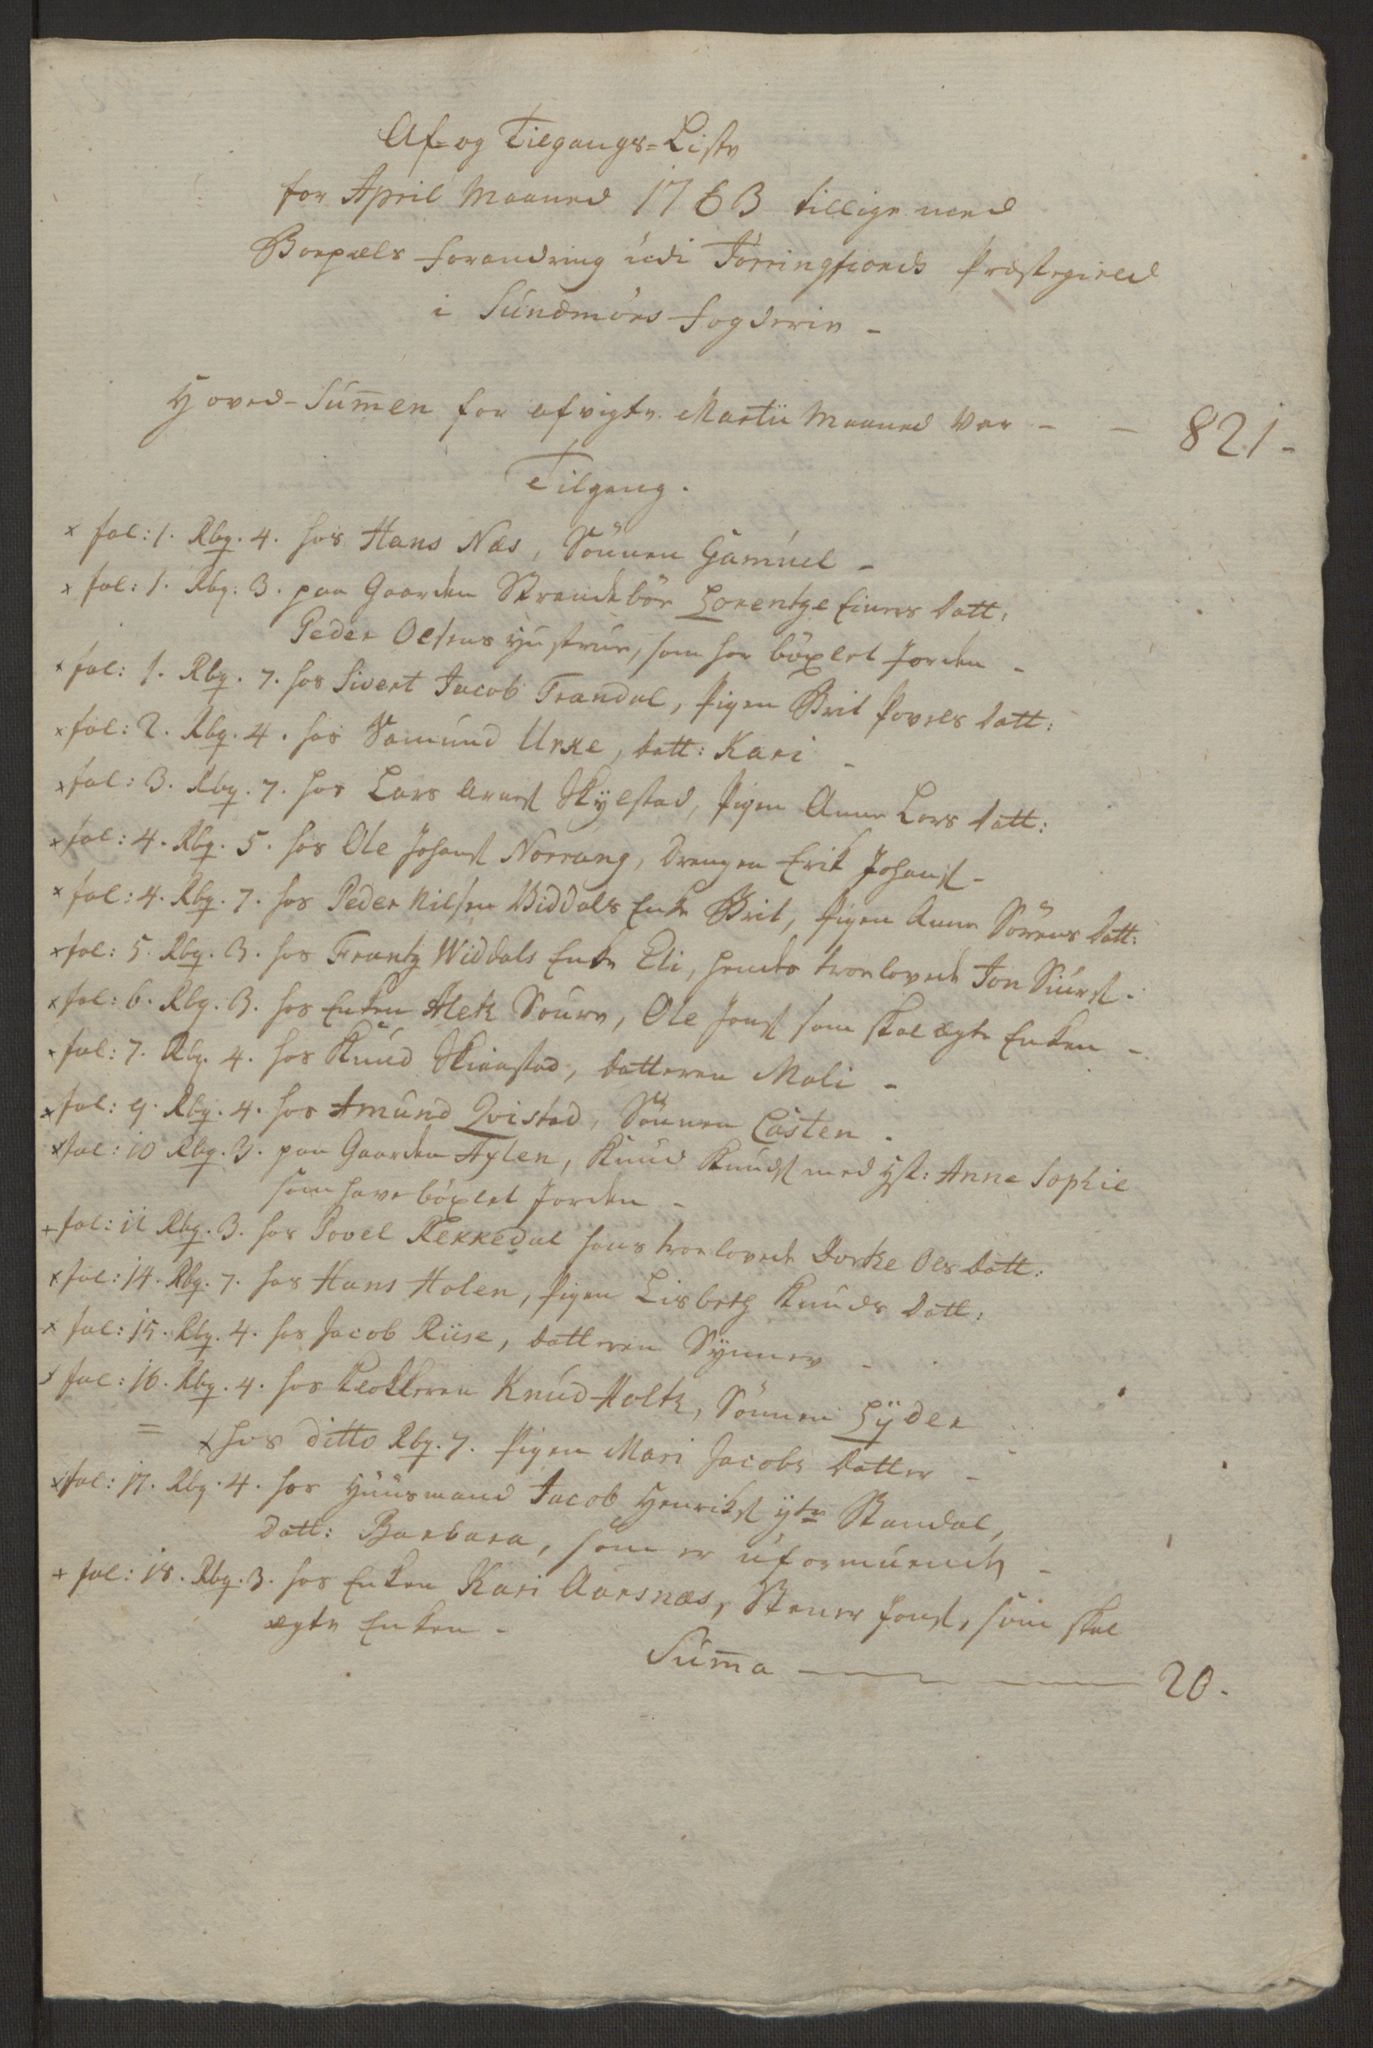 Af- og Tilgangs-Liste
for April Maaned 1763 tillige med
Boepæls forandring udi Jörringfiords Præstegield
i Sundmörs fogderie -
Hoved-Sum̄en for afvigte Martii Maaned var - - 821 -
Tilgang.
x fol: 1. Rbq. 4. hos Hans Næs, Sönnen Samúel -
x fol: 1. Rbq: 3. paa Gaarden Strandebör Lorentze Einers Datt:
Peder Olsens Hustrúe, som har böxlet Jorden -
x fol: 1. Rbq. 7. hos Sivert Jacob Trandal, Pigen Brit Povels Datt:
x fol: 2. Rbq. 4. hos Samúnd Urke, Datt: Kari -
x fol: 3. Rbq. 7. hos Lars Arnes Skÿlstad, Pigen Anne Lars Datt:
x fol: 4. Rbq. 5. hos Ole Johans Norrang, Drengen Erik Johans -
x fol: 4. Rbq. 7. hos Peder Nilsen Viddals Enke Brit, Pigen Anne Sörens Datt:
x fol: 5. Rbq. 3. hos Frantz Widdals Enke Eli, hendes troelovede Jon Siurs -
x fol: 6. Rbq. 3. hos Enken Alek Soure, Ole Jons som skal ægte Enken -
x fol: 7. Rbq. 4. hos Knúd Skiaastad, Datteren Mali -
x fol: 9. Rbq. 4. hos Amúnd Qvistad, Sönnen Casten.
x fol: 10 Rbq. 3. paa Gaarden Aylen, Knúd Knúds med Hst: Anne Sophie
som have böxlet Jorden -
+ fol: 11 Rbq. 3. hos Povel Rekkedal hans troelovede Dortze Ols Datt:
x fol: 14. Rbq. 7. hos Hans Holen, Pigen Lisbeth Knúds Datt:
x fol: 15. Rbq. 4. hos Jacob Riise, Datteren Sÿnnev -
x fol: 16. Rbq. 4. hos Klokkeren Knúd Holtz, Sönnen Lÿder -
= x hos ditto Rbq. 7. Pigen Mari Jacobs Datter -
x fol: 17. Rbq. 4. hos Húúsmand Jacob Henriks ÿtre Standal,
Datt: Barbara, som er uformúende -
+ fol: 18. Rbq. 3. hos Enken Kari Aarsnæs, Stener Jons, som skal
ægte Enken -
Súm̄a - 20 -